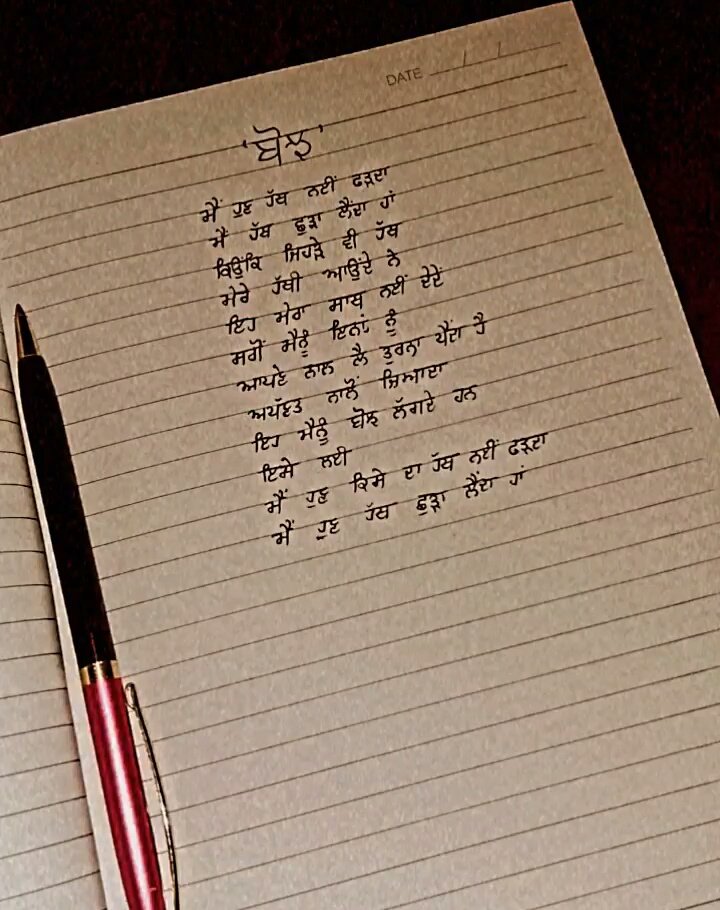 DATE / /
'ਬੋਝ'
ਮੈਂ ਹੁਣ ਹੱਥ ਨਈਂ ਫੜ੍ਹਦਾ
ਮੈਂ ਹੱਥ ਛੁੜਾ ਲੈਂਦਾ ਹਾਂ
ਕਿਉਂਕਿ ਜਿਹੜੇ ਵੀ ਹੱਥ
ਮੇਰੇ ਹੱਥੀਂ ਆਉਂਦੇ ਨੇ
ਇਹ ਮੇਰਾ ਸਾਥ ਨਈਂ ਦੇਂਦੇ
ਸਗੋਂ ਮੈਨੂੰ ਇਨਾਂ ਨੂੰ
ਆਪਣੇ ਨਾਲ ਲੈ ਤੁਰਨਾ ਪੈਂਦਾ ਹੈ
ਅਪੱਣਤ ਨਾਲੋਂ ਜ਼ਿਆਦਾ
ਇਹ ਮੈਨੂੰ ਬੋਝ ਲੱਗਦੇ ਹਨ
ਇਸੇ ਲਈ
ਮੈਂ ਹੁਣ ਕਿਸੇ ਦਾ ਹੱਥ ਨਈਂ ਫੜ੍ਹਦਾ
ਮੈਂ ਹੁਣ ਹੱਥ ਛੁੜਾ ਲੈਂਦਾ ਹਾਂ